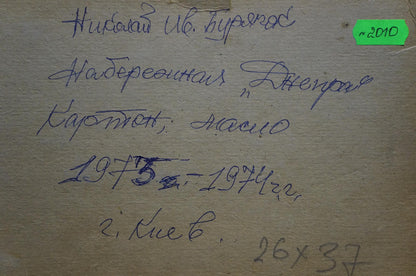 Николай Ив. Бурячок
~2010
Набережная „Днепра"
Картон, масло
1975 г. - 1974 г.г.
г. Киев.
26 x 37